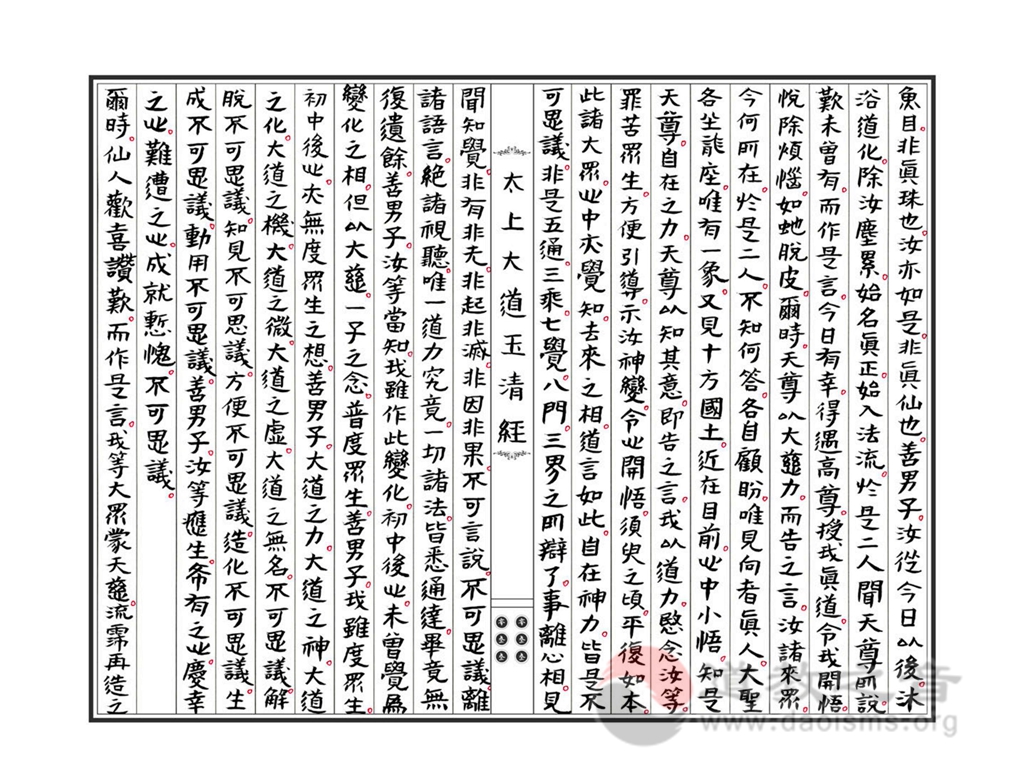 魚目非眞珠也。汝亦如是。非眞仙也。善男子。汝從今日以後。沐
浴道化。除汝塵累。始名眞正。始入法流。於是二人聞天尊所說。
歎未曾有。而作是言。今日有幸。得遇高尊。授我眞道。令我開悟。
悅除煩惱。如虵脫皮。爾時。天尊以大慈力。而告之言。汝諸來眾。
今何所在。於是二人。不知何答。各自顧盼。唯見向者眞人。大聖
各坐龍座。唯有一象。又見十方國土。近在目前。心中小悟。知是
天尊。自在之力。天尊以知其意。即告之言。我以道力。愍念汝等
罪苦眾生。方便引導。示汝神變。令心開悟。須臾之頃。平復如本。
此諸大眾。心中亦覺。知去來之相。道言如此。自在神力。皆是不
可思議。非是五通。三乘七覺。八門。三界之所辯了。事離心相。見
太上大道玉清經
聞知覺。非有非无。非起非滅。非因非果。不可言說。不可思議。離
諸語言。絕諸視聽。唯一道力究竟。一切諸法。皆悉通達。畢竟無
復遺餘。善男子。汝等當知。我雖作此變化。初中後心。未曾覺為
變化之相。但以大慈。一子之念。普度眾生。善男子。我雖度眾生。
初中後心。亦無度眾生之想。善男子。大道之力。大道之神。大道
之化。大道之機。大道之微。大道之虛。大道之無名。不可思議。解
脫不可思議。知見不可思議。方便不可思議。造化不可思議。生
成不可思議。動用不可思議。善男子。汝等應生希有之心。慶幸
之心。難遭之心。成就慙愧。不可思議。
爾時。仙人歡喜讚歎。而作是言。我等大眾。蒙天慈流霈。再造之
道教之音
www.daoisms.org